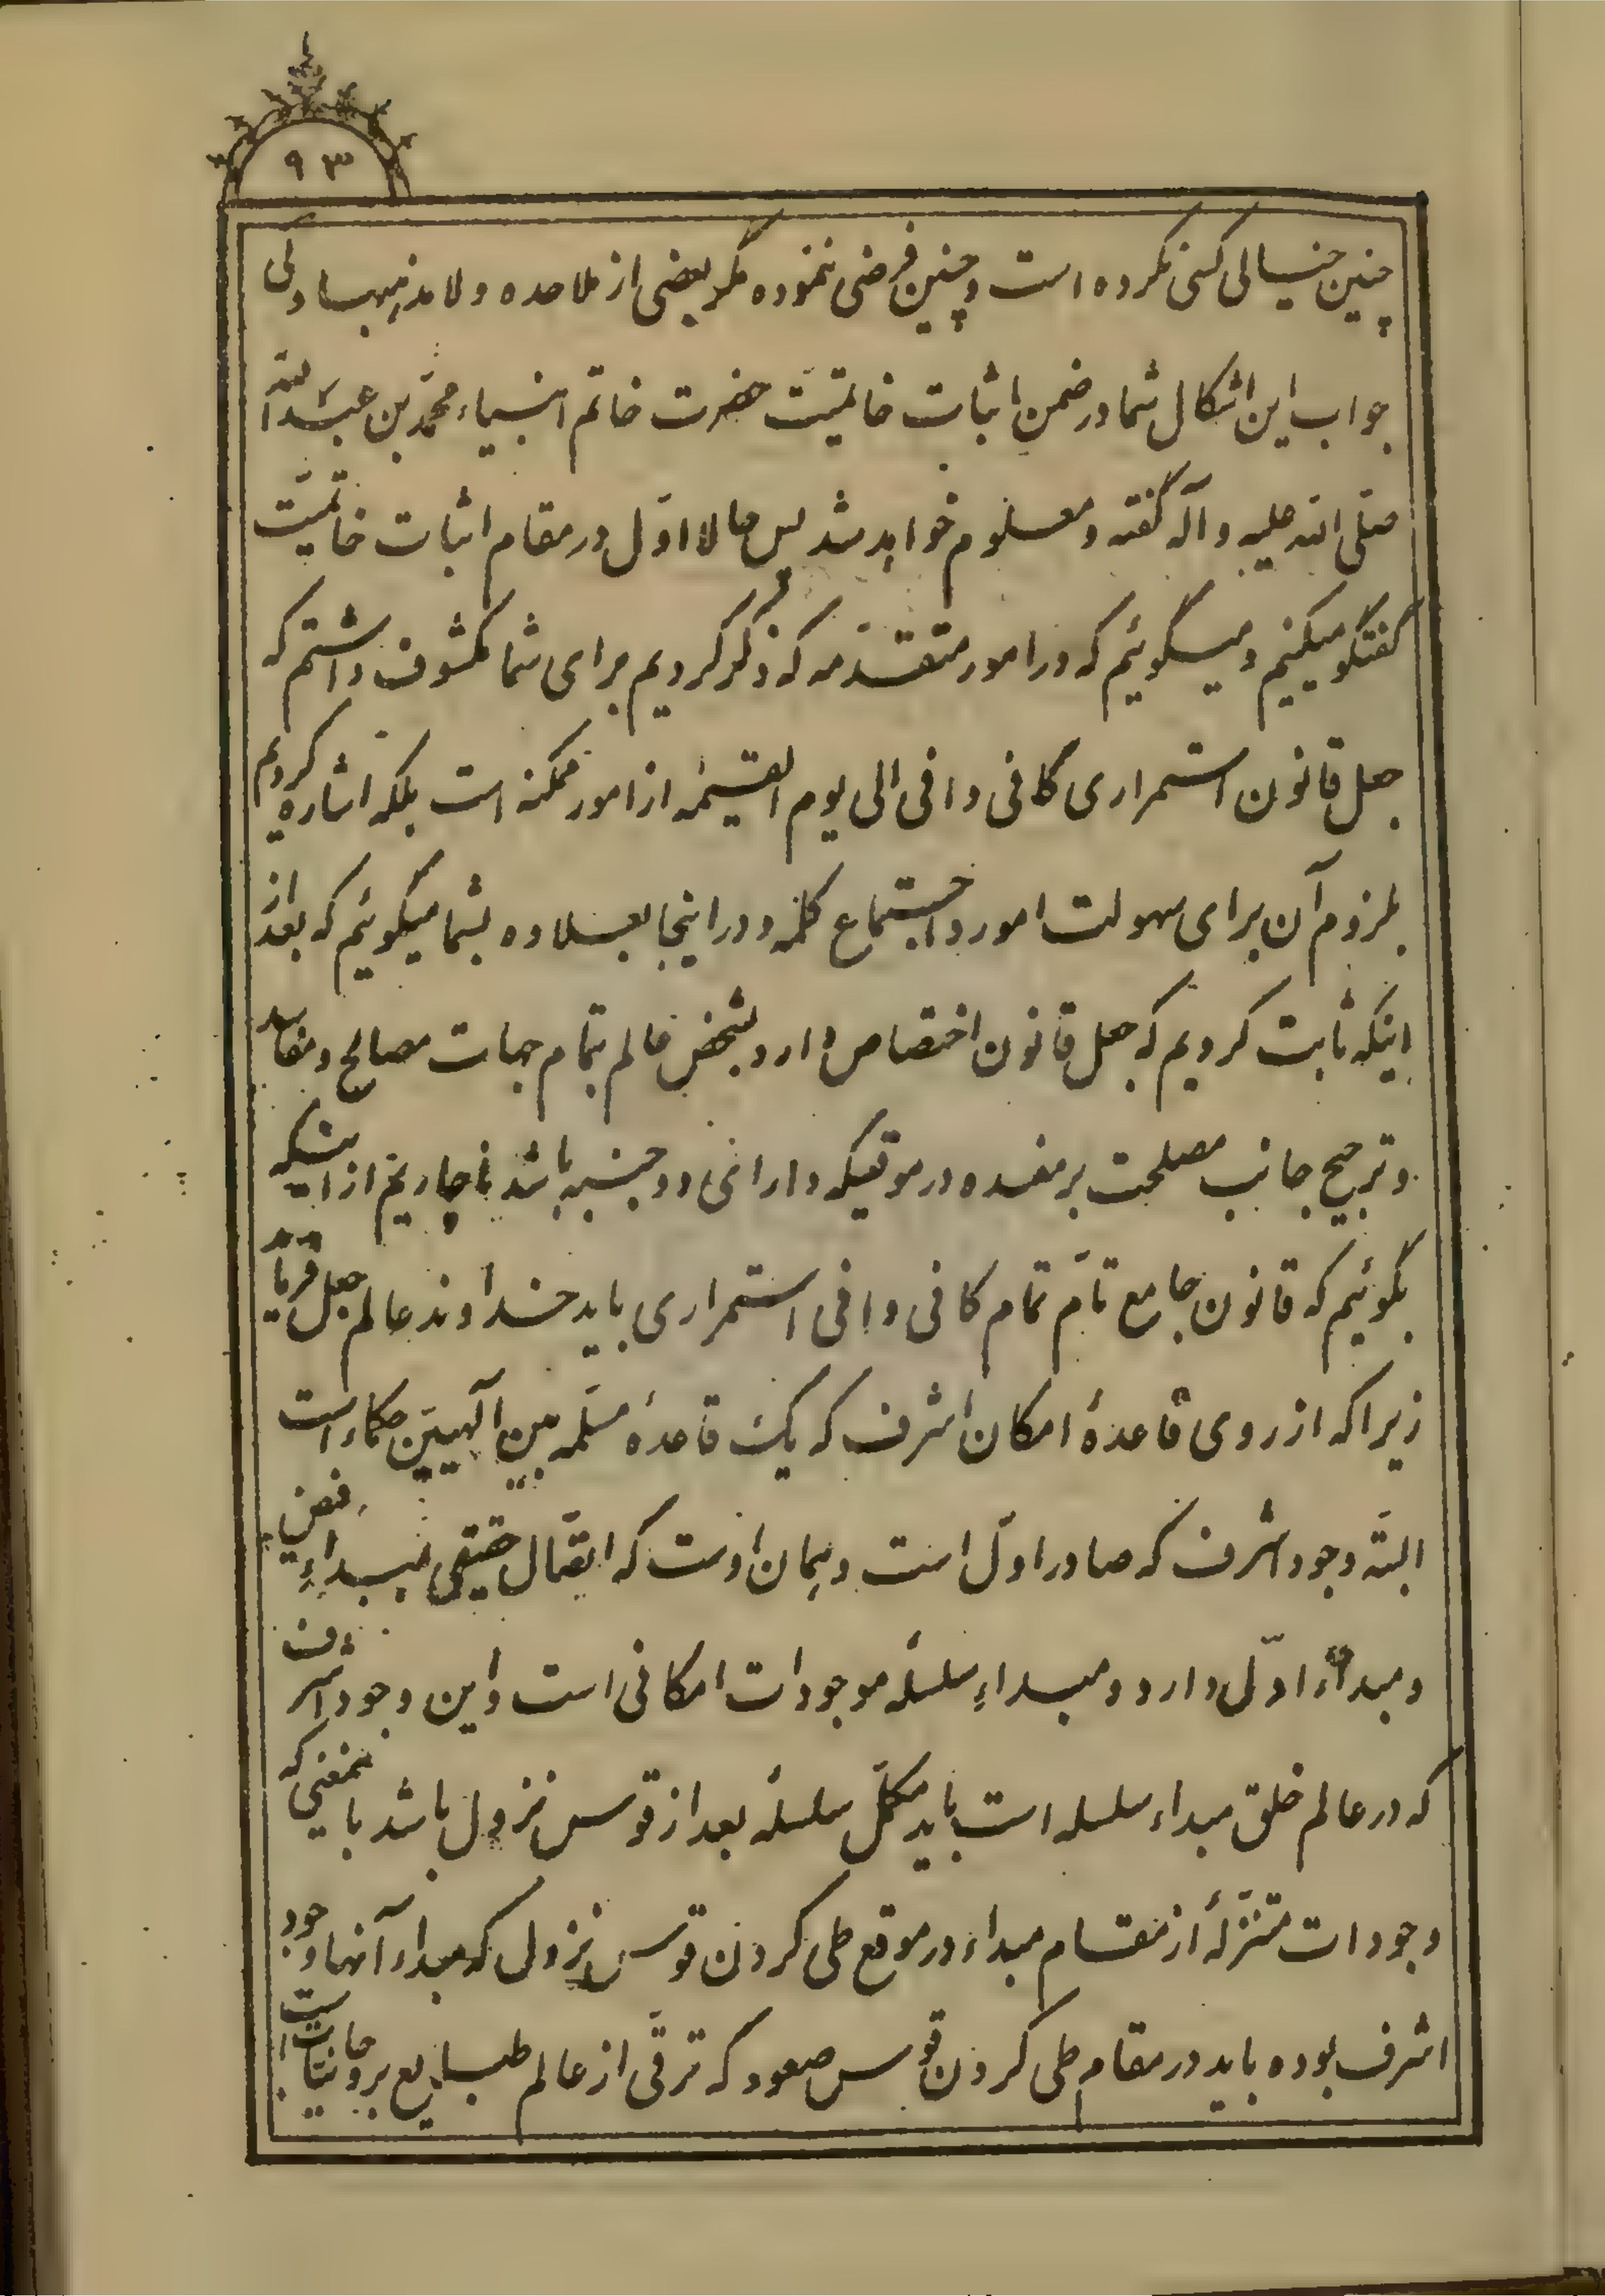 ۹۳
چنین خیالی کسی نکرده است و چنین فرضی ننموده مگر بعضی از ملاحده و لامذهبها ولی
جواب این اشکال شما در ضمن اثبات خاتمیّت حضرت خاتم انبیاء محمّد بن عبدالله
صلّی الله علیه و آله گفته و معلوم خواهد شد پس حالا اوّل در مقام اثبات خاتمیّت
گفتگو میکنیم و میگوئیم که در امور متقدّمه که ذکر کردیم برای شما مکشوف داشتم که
جعل قانون استمراری کافی وافی الی یوم القیمة از امور ممکنه است بلکه اشاره کردیم
بلزوم آن برای سهولت امور و اجتماع کلمه و در اینجا بعلاوه بشما میگوئیم که بعد از
اینکه ثابت کردیم که جعل قانون اختصاص دارد بشخص عالم بتمام جهات مصالح و مفاسد
و ترجیح جانب مصلحت بر مفسده در موقعیکه دارای دو جنبه باشد ناچاریم از اینکه
بگوئیم که قانون جامع تامّ تمام کافی وافی استمراری باید خداوند عالم جعل فرماید
زیرا که از روی قاعدهٔ امکان اشرف که یک قاعدهٔ مسلّمه بین آلهیّین حکماء است
البتّه وجود اشرف که صادر اوّل است و همان اوست که اتصّال حقیقی بمبداء فیض
و مبداء اوّلی دارد و مبداء سلسلهٔ موجودات امکانی است و این وجود اشرف
که در عالم خلق مبداء سلسله است باید مکمّل سلسلهٔ بعد از قوس نزول باشد باینمعنی که
وجودات متنزّله از مقام مبداء در موقع طی کردن قوس نزولی که مبداء آنها وجود
اشرف بوده باید در مقام طی کردن قوس صعود که ترقّی از عالم طبایع بروحانیّات است